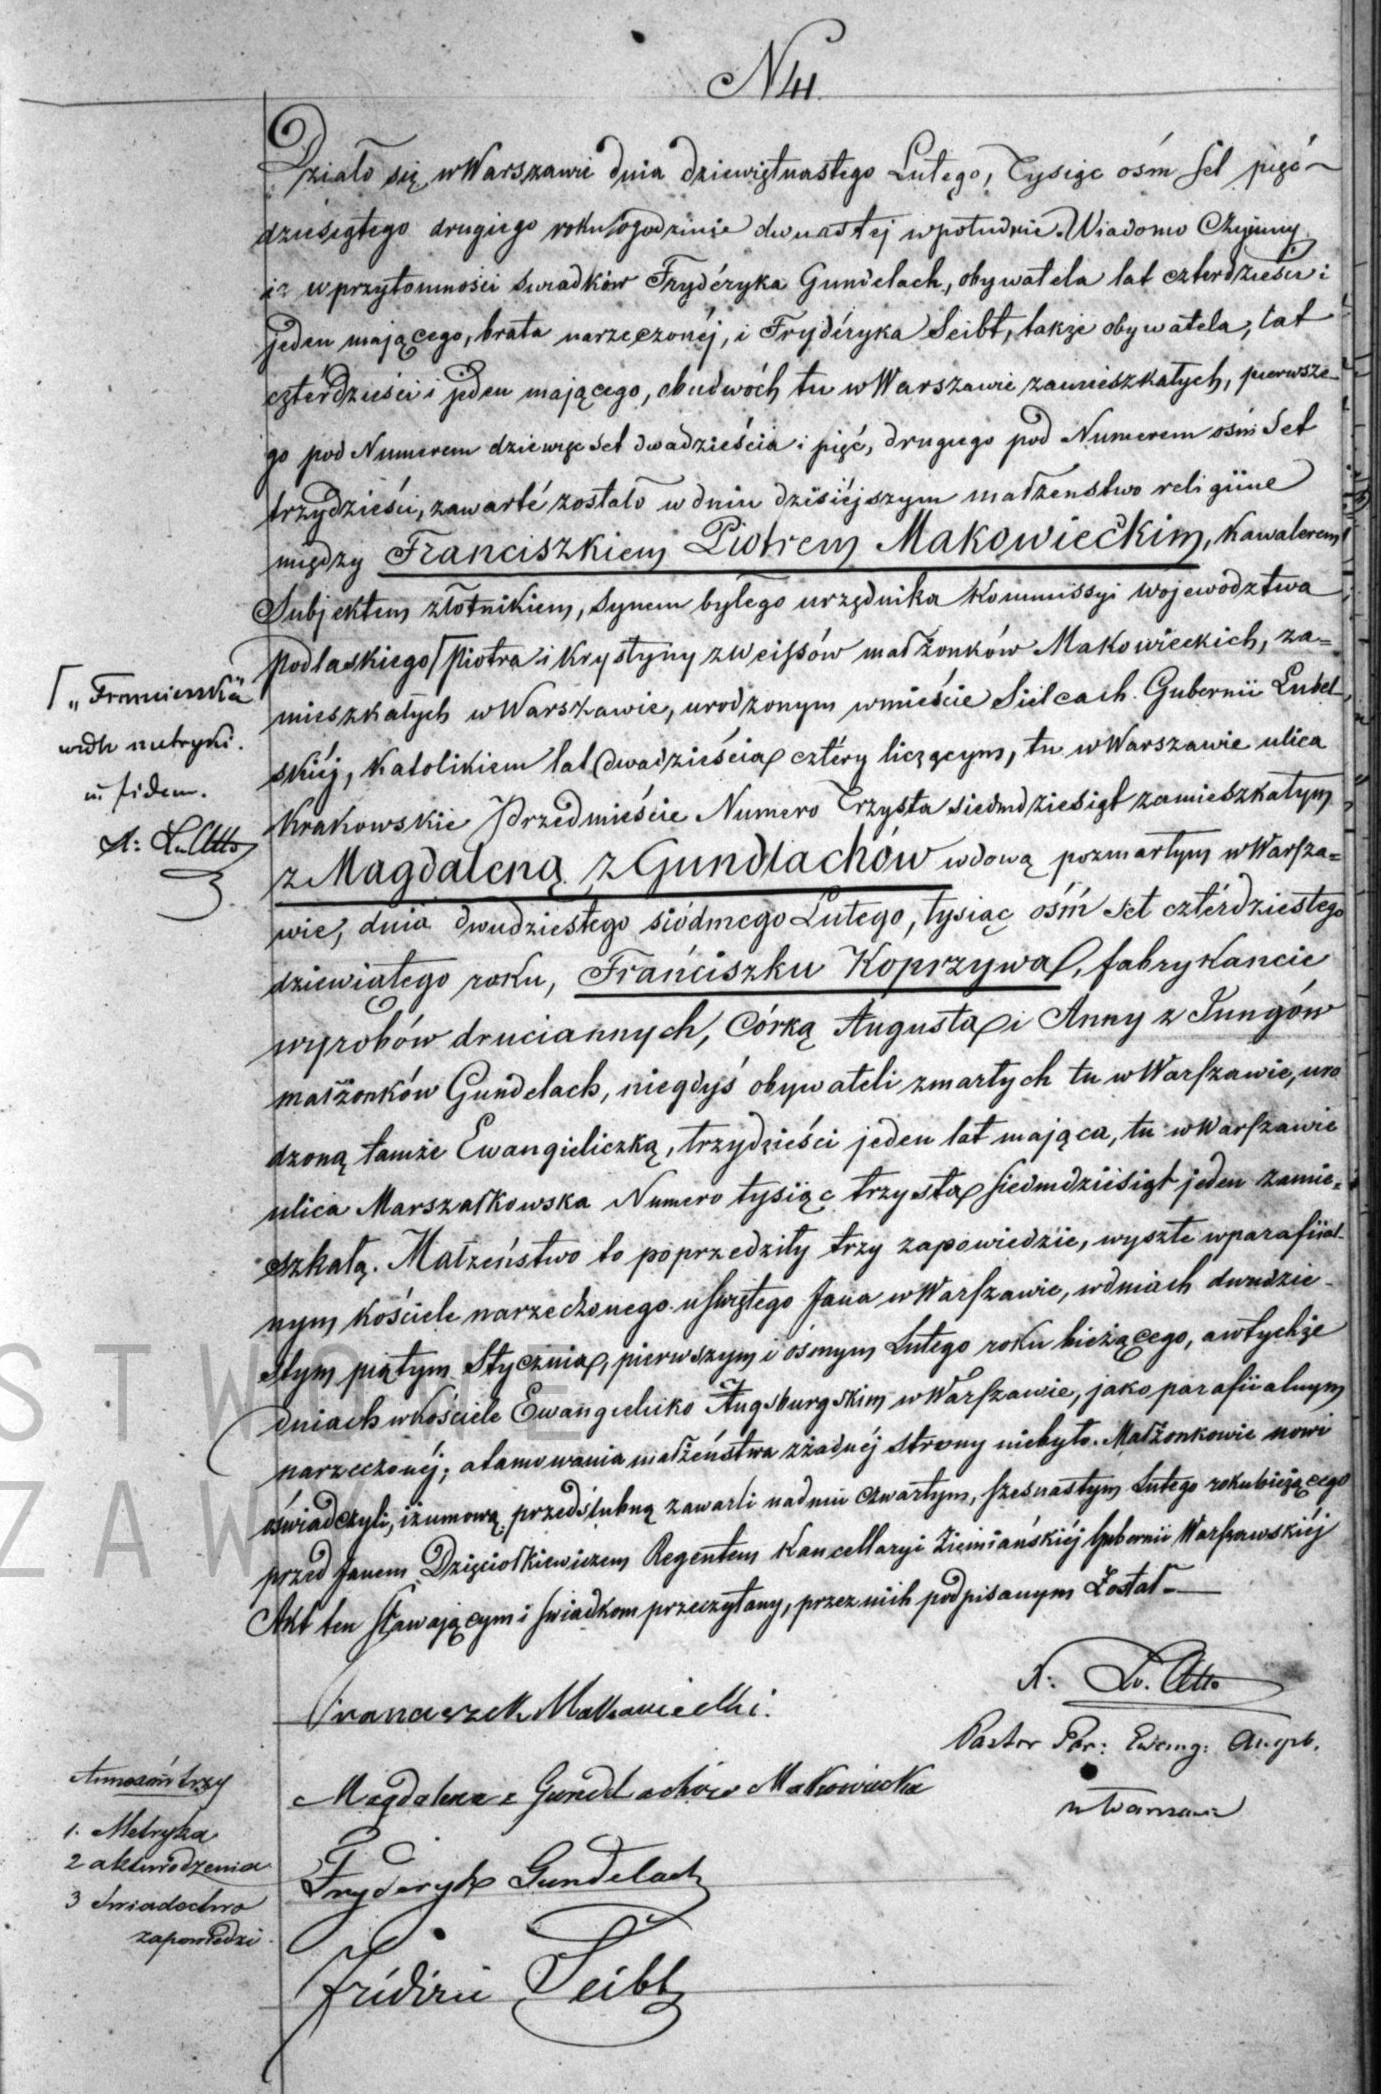 N 41.
Działo się w Warszawie dnia dziewiętnastego Lutego, Tysiąc ośm set pięć-
dziesiątego drugiego roku o godzinie dwunastej w południe. Wiadomo Czyniemy
iż w przytomności świadków Fryderyka Gundelach, obywatela lat czterdzieści i
jeden mającego, brata narzeczonéj, i Fryderyka Seibt, także obywatela, lat
czterdzieści i jeden mającego, obudwóch tu w Warszawie zamieszkałych, pierwsze-
go pod Numerem dziewięć set dwadzieścia i pięć, drugiego pod Numerem ośm set
trzydzieści, zawarté zostało w dniu dzisiéjszym małżeństwo religiine
między Franciszkiem Piotrem Makowieckim, Kawalerem
Subjektem złotnikiem, synem byłego urzędnika Kommissyi województwa
podlaskiego ⌈Piotra i Krystyny z Weissów małżonków Makowieckich, za=
mieszkałych w Warszawie, urodzonym w mieście Sielcach Gubernii Lubel-
skiéj, Katolikiem lat dwadzieścia cztéry liczącym, tu w Warszawie ulica
Krakowskie Przedmieście Numero Trzysta siedmdziesiąt zamieszkałym
z Magdaleną z Gundlachów wdową po zmarłym w Warsza=
wie, dnia dwudziestego siódmego Lutego, tysiąc ośm set czterdziestego
dziewiątego roku, Franciszku Koprzywa, fabrykancie
wyrobów druciannych, Córką Augusta i Anny z Jungów
małżonków Gundelach, niegdyś obywateli zmarłych tu w Warszawie, uro
dzoną tamże Ewangieliczką, trzydzieści jeden lat mająca, tu w Warszawie
ulica Marszałkowska Numero tysiąc trzysta siedmdziesiąt jeden zamie=
szkałą. Małżeństwo to poprzedziły trzy zapowiedzie, wyszłe w parafiial-
nym kościele narzeczonego u świętego Jana w Warszawie, w dniach dwudzie-
stym piątym Stycznia, pierwszym i ósmym Lutego roku bieżącego, a w tychże
dniach w kościele Ewangielicko Augsburgskim w Warszawie, jako parafiialnym
narzeczonéj; a tamowania małżeństwa z żadnéj strony niebyło. Małżonkowie nowi
oświadczyli, iż umowę przedślubną zawarli na dniu czwartym, szesnastym Lutego roku bieżącego
przed Janem Dzięciołkiewiczem Regentem Kancellaryi Ziemiańskiéj Gubernii Warszawskiéj
Akt ten stawającym i świadkom przeczytany, przez nich podpisanym został.
⌈ „Franciszka
wedle metryki.
in fidem.
X: L. Otto
Franciszek Makowiecki.
X: L. Otto
Pastor Par: Ewang: Augsb.
w Warszawie
Magdalena z Gundlachów Makowiecka
Fryderyk Gundelach
Fridiric Seibt
Annexów trzy
1. Metryka
2 akt urodzenia
3 Świadectwo
zapowiedzi.
STWOWE
ZAW